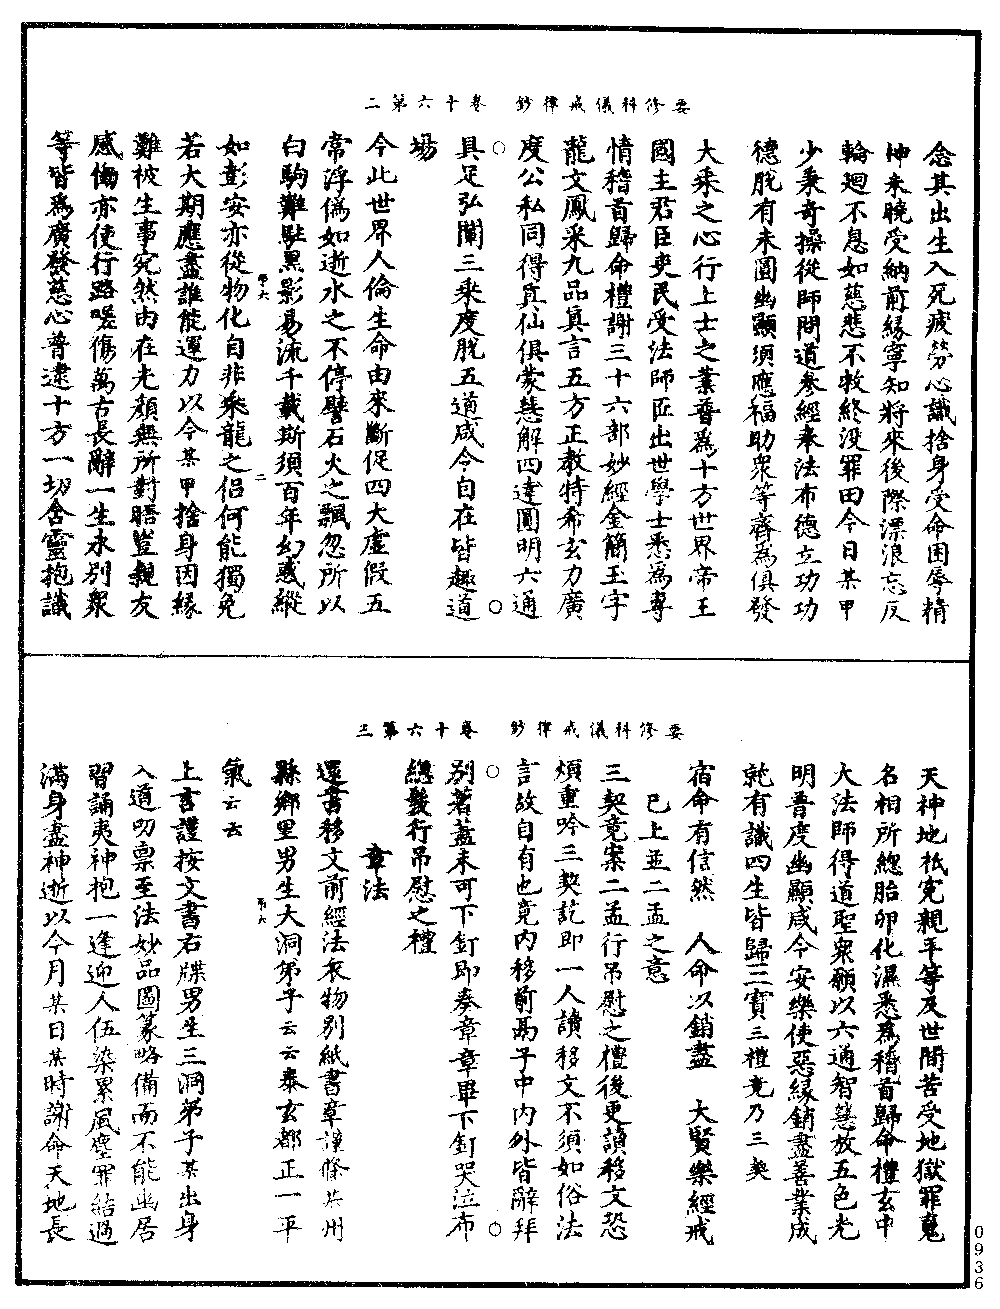 要修科儀戒律鈔　卷十六第二
念其出生入死疲勞心識捨身受命困辱精
神未曉受納前緣寧知將來後際漂浪忘反
輪廻不息如慈悲不救終没罪田今日某甲
少秉奇操從師問道參經奉法布德立功功
德脫有未圓幽顯須應福助衆等齊為俱發
大乘之心行上士之業普爲十方世界帝王
國主君臣吏民受法師匠出世學士悉爲尊
情稽首歸命禮謝三十六部妙經金簡玉字
龍文鳳采九品真言五方正教特希玄力廣
度公私同得真仙俱蒙慧解四達圓明六通
具足弘闡三乘度脫五道咸令自在皆趣道
場
今此世界人倫生命由來斷促四大虛假五
常浮僞如逝水之不停譬石火之飄忽所以
白駒難駐黑影易流千載斯須百年幻惑縱
如彭安亦從物化自非乘龍之侶何能獨免
若大期應盡誰能運力以今某甲捨身因緣
難被生事宛然由在光顏無所對晤豈親友
感慟亦使行路嗟傷萬古長辭一生永別衆
等皆爲廣發慈心普逮十方一切含靈抱識
要修科儀戒律鈔　卷十六第三
天神地祇寃親平等及世間苦受地獄罪䰟
名相所總胎卵化濕悉爲稽首歸命禮玄中
大法師得道聖衆願以六通智慧放五色光
明普度幽顯咸令安樂使惡緣銷盡善業成
就有識四生皆歸三寶三禮竟乃三契
宿命有信然　人命以銷盡　大賢樂經戒
已上並二孟之意
三契竟案二孟行吊慰之禮後更讀移文恐
煩重吟三契訖即一人讀移文不須如俗法
言故自有也竟內移前髙子中內外皆辭拜
別著蓋未可下釘即奏章章畢下釘哭泣布
總髮行吊慰之禮
章法
還書移文前經法衣物別紙書章謹條某州
縣鄉里男生大洞弟子云云泰玄都正一平
氣云云
上言謹按文書右牒男生三洞弟子某出身
入道叨禀至法妙品圖籙略備而不能幽居
習誦夷神抱一逢迎人伍染累風塵罪結過
滿身盡神逝以今月某日某時謝命天地長
0936